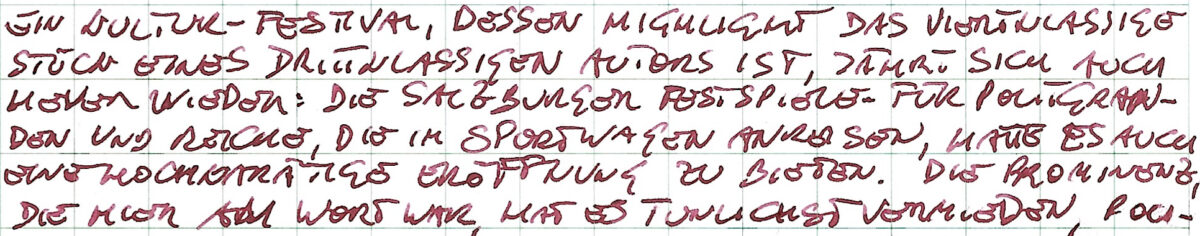 EIN KULTUR-FESTIVAL, DESSEN HIGHLIGHT DAS VIERTKLASSIGE
STÜCK EINES DRITTKLASSIGEN AUTORS IST, JÄHRT SICH AUCH
HEUER WIEDER: DIE SALZBURGER FESTSPIELE - FÜR POLITGRAN-
DEN UND REICHE, DIE IM SPORTWAGEN ANREISEN, HATTE ES AUCH
EINE HOCHKARÄTIGE ERÖFFNUNG ZU BIETEN. DIE PROMINENZ,
DIE HIER AM WORT WAR, HAT ES TUNLICHST VERMIEDEN, POLI-